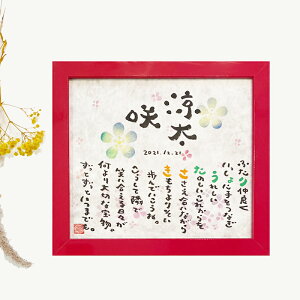 涼太・
咲
2021.12.21.
ふたり仲良く
いっしょに手をつなぎ
うれしい
たのしいこれからを
ささえ合いながら
きもちよりそい
歩んでいこうね。
こうして隣で
笑い合える日々が
何より大切な宝物。
ずっとずっといつまでも。